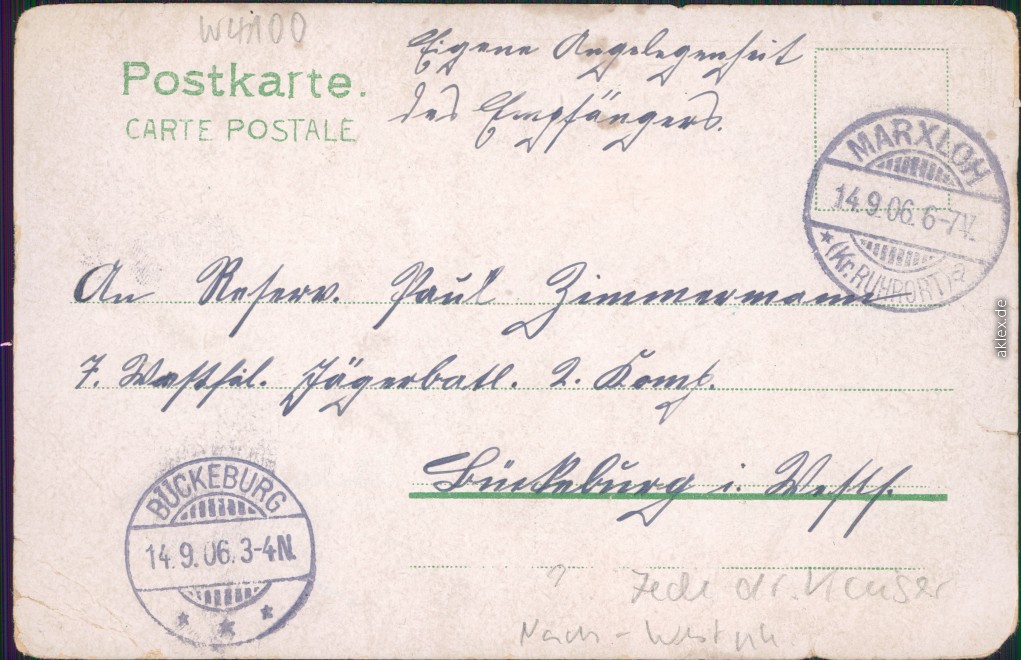 W4100
Postkarte.
CARTE POSTALE
Eigene Angelegenheit
des Empfängers.
MARXLOH
14.9.06. 6-7V.
(Kr. RUHRORT) a
An Reserv. Paul Zimmermann
7. Westfäl. Jägerbatl. 2. Komp.
Bückeburg i. Westf.
BÜCKEBURG
14.9.06. 3-4N.
?
aklex.de